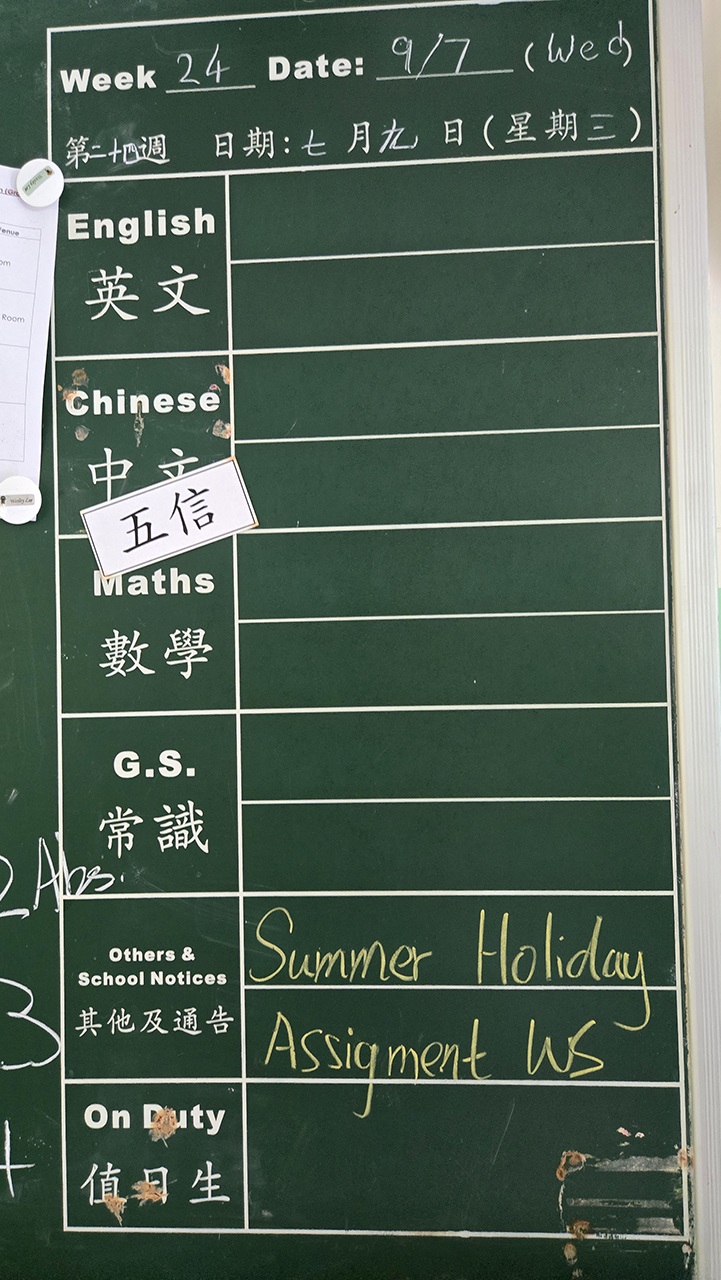 Week 24 Date: 9/7 (Wed)
第二十四週 日期:七月九日(星期三)
English
英文
Chinese
中文
五信
Maths
數學
G.S.
常識
2 Abs.
Others &
School Notices
其他及通告
Summer Holiday
Assigment WS
3
On Duty
值日生
enue
om
Room